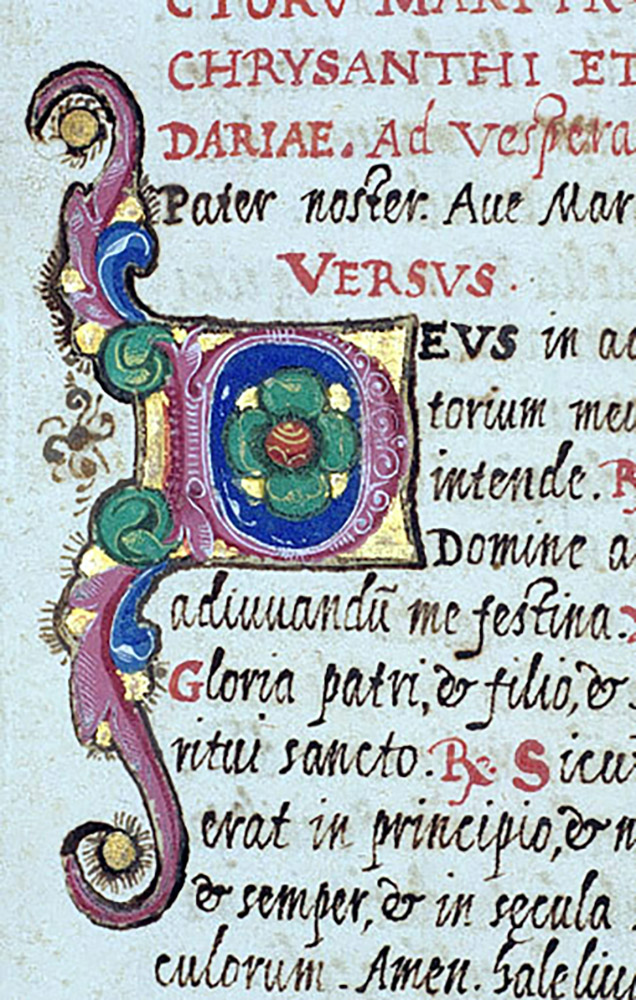 CTORV MARTYR
CHRYSANTHI ET
DARIAE. Ad Vespera
Pater noster. Aue Mar
VERSVS.
DEVS in ad
torium meu
intende. ℟
Domine a
adiuuandū me festina.
Gloria patri, & filio, &
ritui sancto. ℟. Sicut
erat in principio, & n
& semper, & in sęcula
culorum. Amen. Saleliu